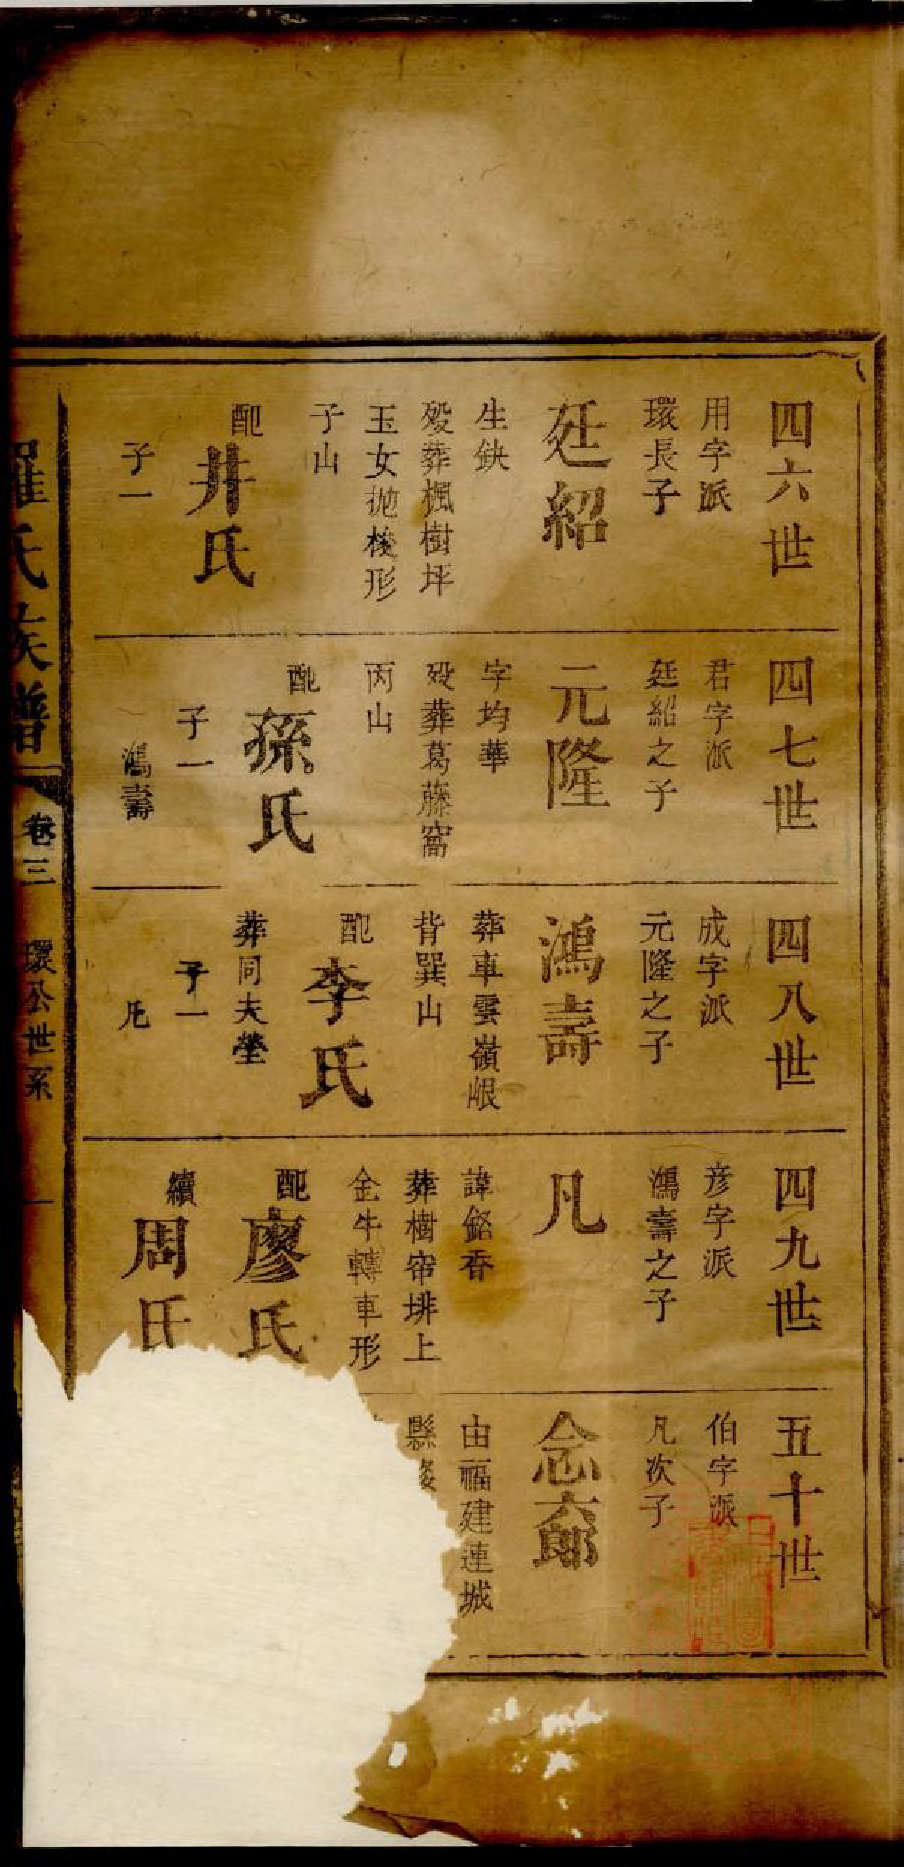 四六世
用字派
環長子
廷紹
生缺
歿葬楓樹坪
玉女抛梭形
子山
配
井氏
子一
四七世
君字派
廷紹之子
元隆
字均華
歿葬葛藤窩
丙山
配
孫氏
子一
鴻壽
四八世
成字派
元隆之子
鴻壽
葬車雲嶺㟎
背巽山
配
李氏
葬同夫塋
子一
凡
四九世
彦字派
鴻壽之子
凡
諱銘香
葬樹帘埤上
金牛轉車形
配
廖氏
續
周氏
五十世
伯字派
凡次子
念六郎
由福建連城
縣
羅氏族譜
卷三
環公世系
一